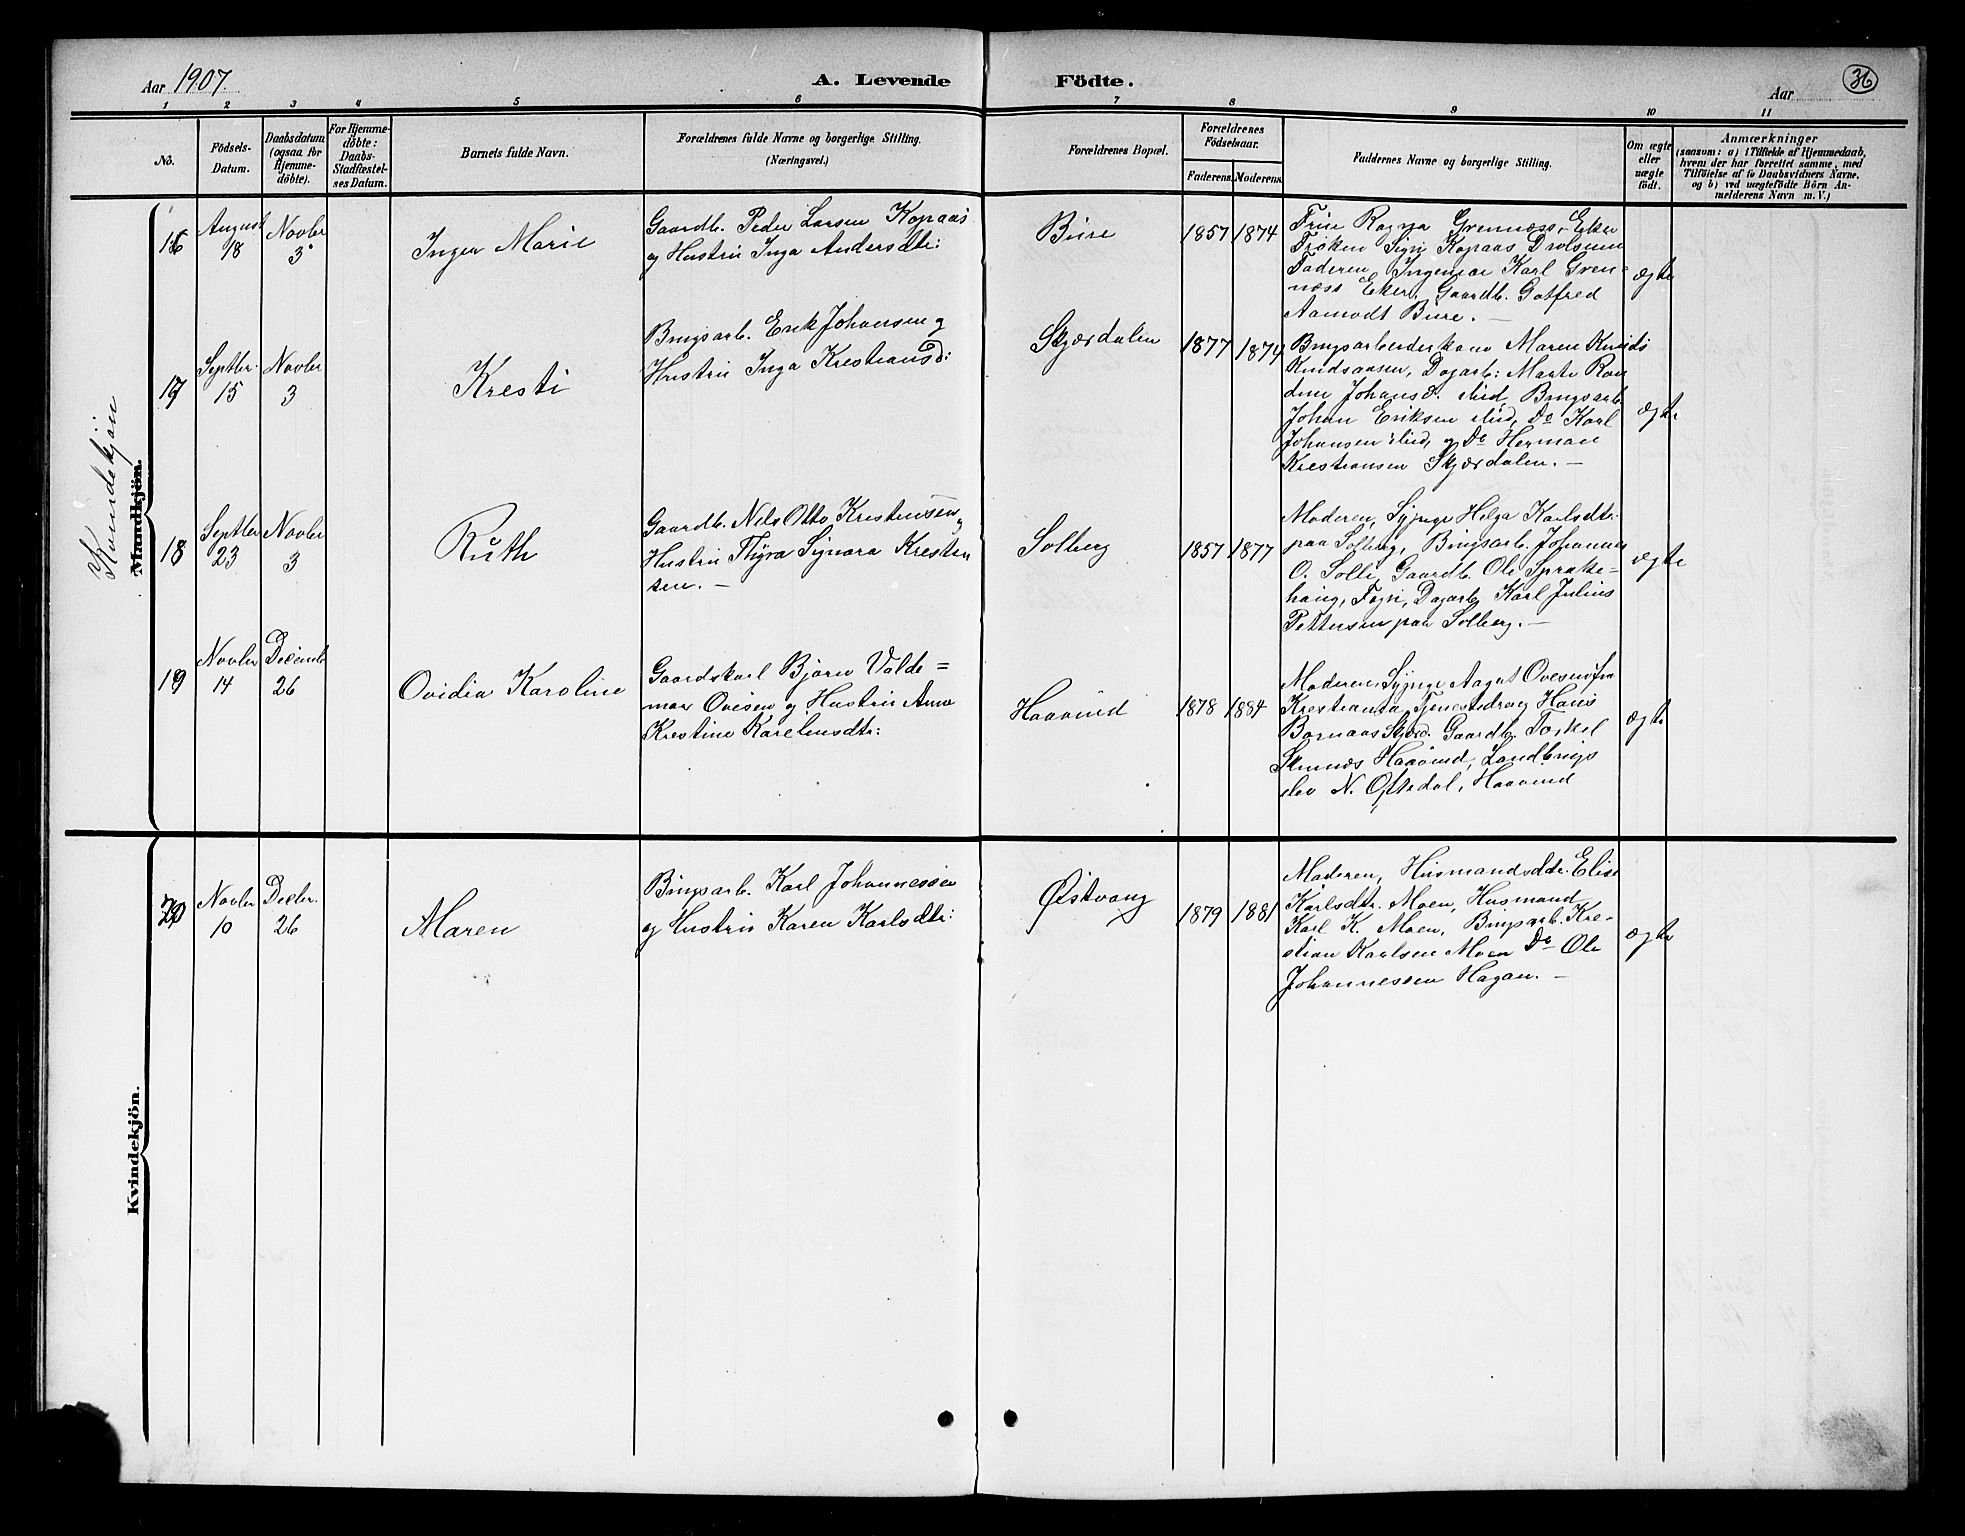 Aar 1907.
A. Levende Födte.
Aar
36
1 2 3 4 5 6 7 8 9 10 11
No.
Födsels-
Datum.
Daabsdatum
(ogsaa for
Hjemme-
döbte).
For Hjemme-
döbte:
Daabs-
Stadfæstel-
ses Datum.
Barnets fulde Navn.
Forældrenes fulde Navne og borgerlige Stilling.
(Næringsvei.)
Forældrenes Bopæl.
Forældrenes
Födselsaar.
Faderens. Moderens.
Faddernes Navne og borgerlige Stilling.
Om ægte
eller
uægte
födt.
Anmærkninger
(saasom: a) i Tilfælde af Hjemmedaab,
hvem der har forrettet samme, med
Tilföielse af to Daabsvidners Navne.
og b) ved uægtefödte Börn An-
melderens Navn m. V.)
Kvindekjön
Mandkjön.
16
August
18
Novbr
3
Inga Marie
Gaardb. Peder Larsen Kopaas
og Hustru Inga Andersdtr:
Bure
1857 1874
Frue Ragna Grennæss, Eker
Frøken Signe Kopaas Drolsum
Faderen, Ingeniør Karl Gren-
næss Eker, Gaardb. Gotfred
Aamodt Bure. —
ægte
17
Septbr.
15
Novbr
3
Kresti
Brugsarb. Erik Johansen og
Hustru Inga Krestiansd:
Skjærdalen
1877 1874
Brugsarbeiderkone Maren Knuds
Knudsaasen, Dagarb: Marte Ran
dine Johansd. Lied, Brugsarb.
Johan Eriksen Lied, Do Karl
Johansen Lied, og Do Herman
Krestiansen Skjærdalen. —
ægte
18
Septbr
23
Novbr
3
Ruth
Gaardb. Nils Otto Kristensen og
Hustru Thyra Signora Kresten
sen. —
Solberg
1857 1877
Moderen, Sypige Helga Karlsdtr.
paa Solberg, Brugsarb. Johannes
O. Solli, Gaardb. Ole Sprake-
haug, Dagarb Karl Julius
Pettersen paa Solberg. —
ægte
19
Novbr
14
Decemb
26
Ovidia Karoline
Gaardskarl Bjørn Valde=
mar Ovesen og Hustru Anna
Krestine Kareliusdtr:
Haavind
1878 1884
Moderen, Sypige Aagot Ovesen fra
Krestiania, Tjenestedreng Hans
Bornaas Skjærd. Gaardb. Torkel
Haavind, Landbrugs
elev N. Oftedal, Haavind
ægte
Kvindekjön.
20
Novbr
10
Decbr.
26
Maren
Brugsarb. Karl Johannessen
og Hustru Karen Karlsdtr:
Østvang
1879 1881
Moderen, Husmandsdtr. Elise
Karlsdtr. Moen, Husmand
Karl K. Moen, Brugsarb. Kre-
stian Karlsen Moen Do Ole
Johannessen Hagan. —
ægte